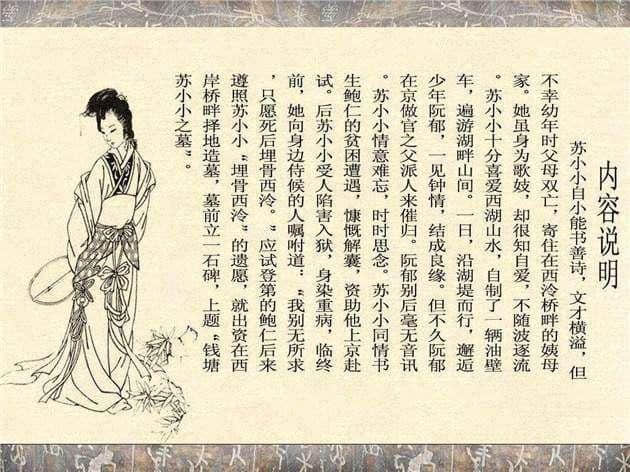 内容说明
苏小小自小能书善诗，文才横溢，但
不幸幼年时父母双亡，寄住在西泠桥畔的姨母
家。她虽身为歌妓，却很知自爱，不随波逐流
。苏小小十分喜爱西湖山水，自制了一辆油壁
车，遍游湖畔山间。一日，沿湖堤而行，邂逅
少年阮郁，一见钟情，结成良缘。但不久阮郁
在京做官之父派人来催归。阮郁别后毫无音讯
。苏小小情意难忘，时时思念。苏小小同情书
生鲍仁的贫困遭遇，慷慨解囊，资助他上京赴
试。后苏小小受人陷害入狱，身染重病，临终
前，她向身边侍候的人嘱咐道：“我别无所求
，只愿死后埋骨西泠。”应试登第的鲍仁后来
遵照苏小小“埋骨西泠”的遗愿，就出资在西
岸桥畔择地造墓，墓前立一石碑，上题“钱塘
苏小小之墓”。